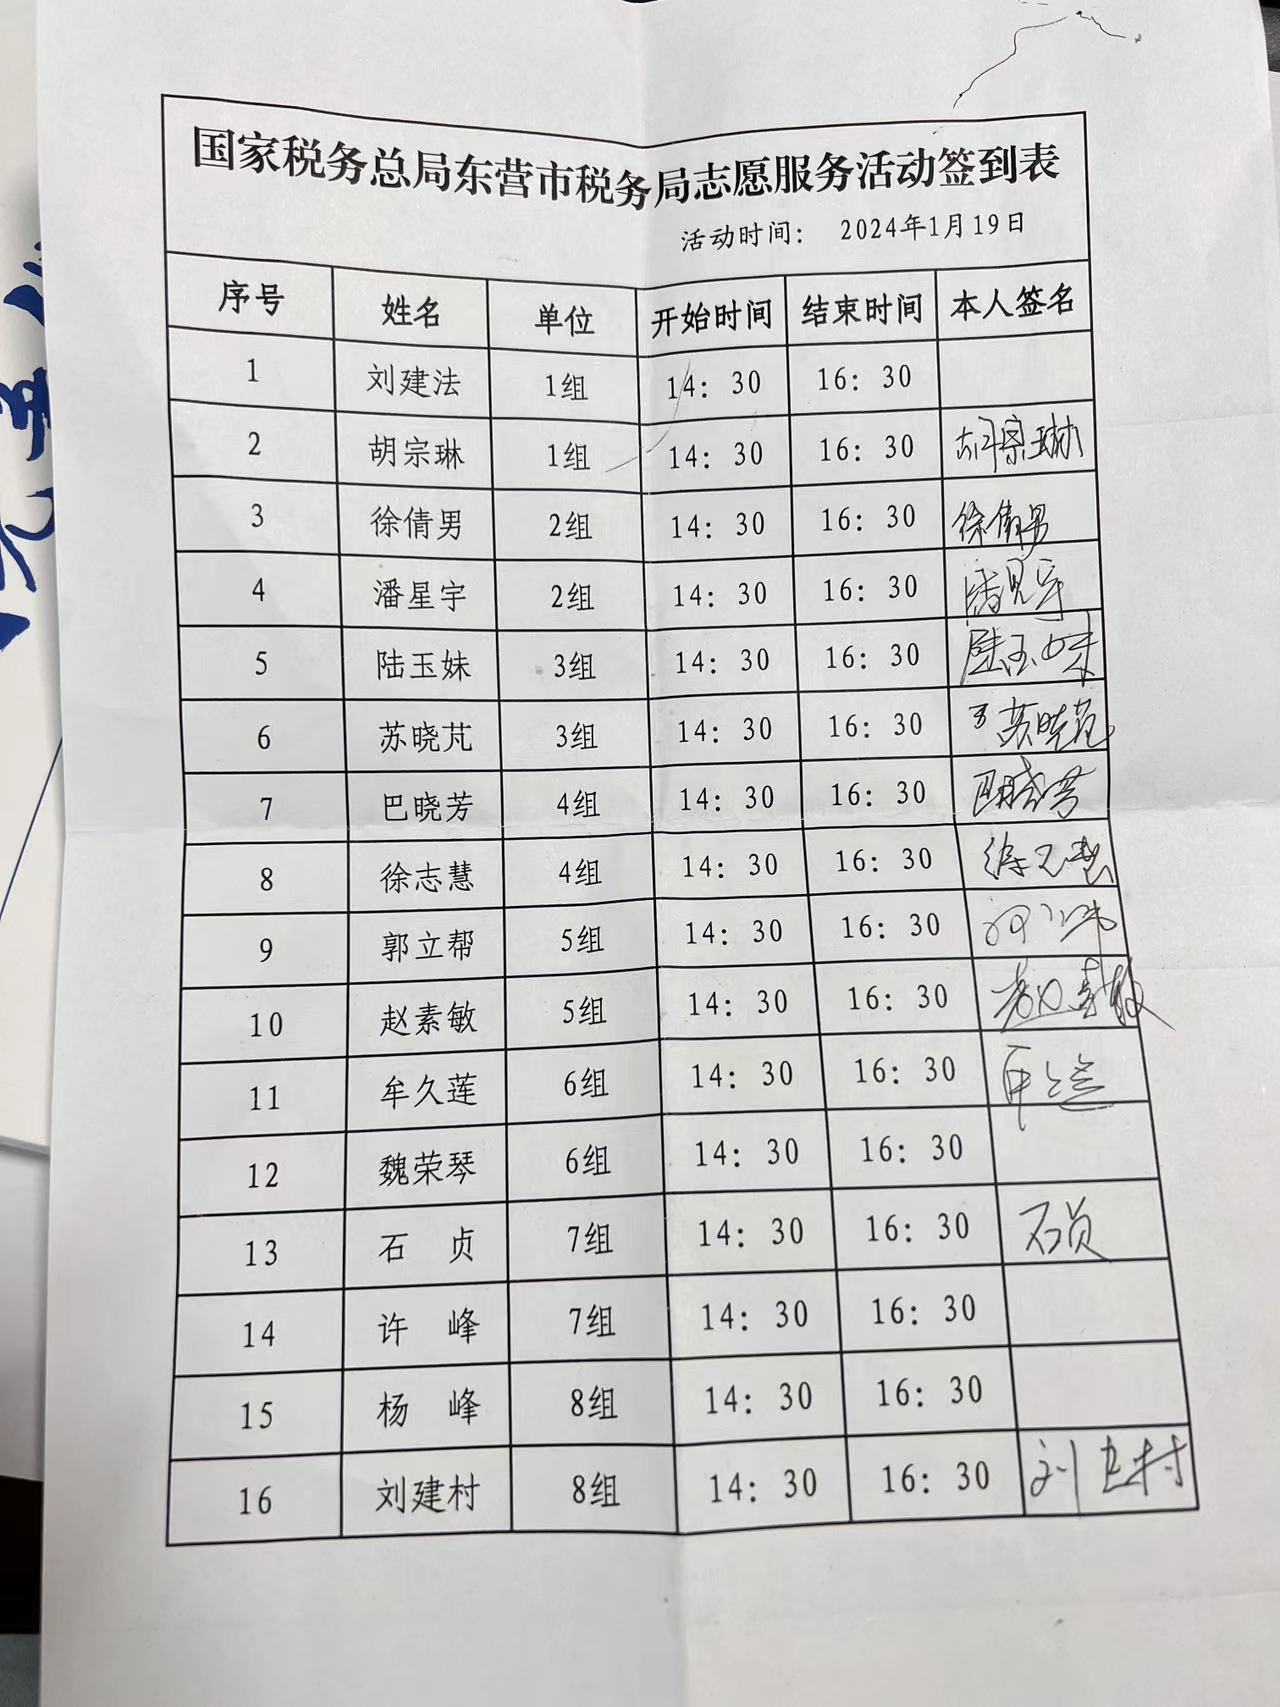 国家税务总局东营市税务局志愿服务活动签到表
活动时间： 2024年1月19日
序号 姓名 单位 开始时间 结束时间 本人签名
1 刘建法 1组 14：30 16：30
2 胡宗琳 1组 14：30 16：30 胡宗琳
3 徐倩男 2组 14：30 16：30 徐倩男
4 潘星宇 2组 14：30 16：30 潘星宇
5 陆玉妹 3组 14：30 16：30 陆玉妹
6 苏晓芃 3组 14：30 16：30 苏晓芃
7 巴晓芳 4组 14：30 16：30 巴晓芳
8 徐志慧 4组 14：30 16：30 徐志慧
9 郭立帮 5组 14：30 16：30
10 赵素敏 5组 14：30 16：30 赵素敏
11 牟久莲 6组 14：30 16：30
12 魏荣琴 6组 14：30 16：30
13 石贞 7组 14：30 16：30 石贞
14 许峰 7组 14：30 16：30
15 杨峰 8组 14：30 16：30
16 刘建村 8组 14：30 16：30 刘建村